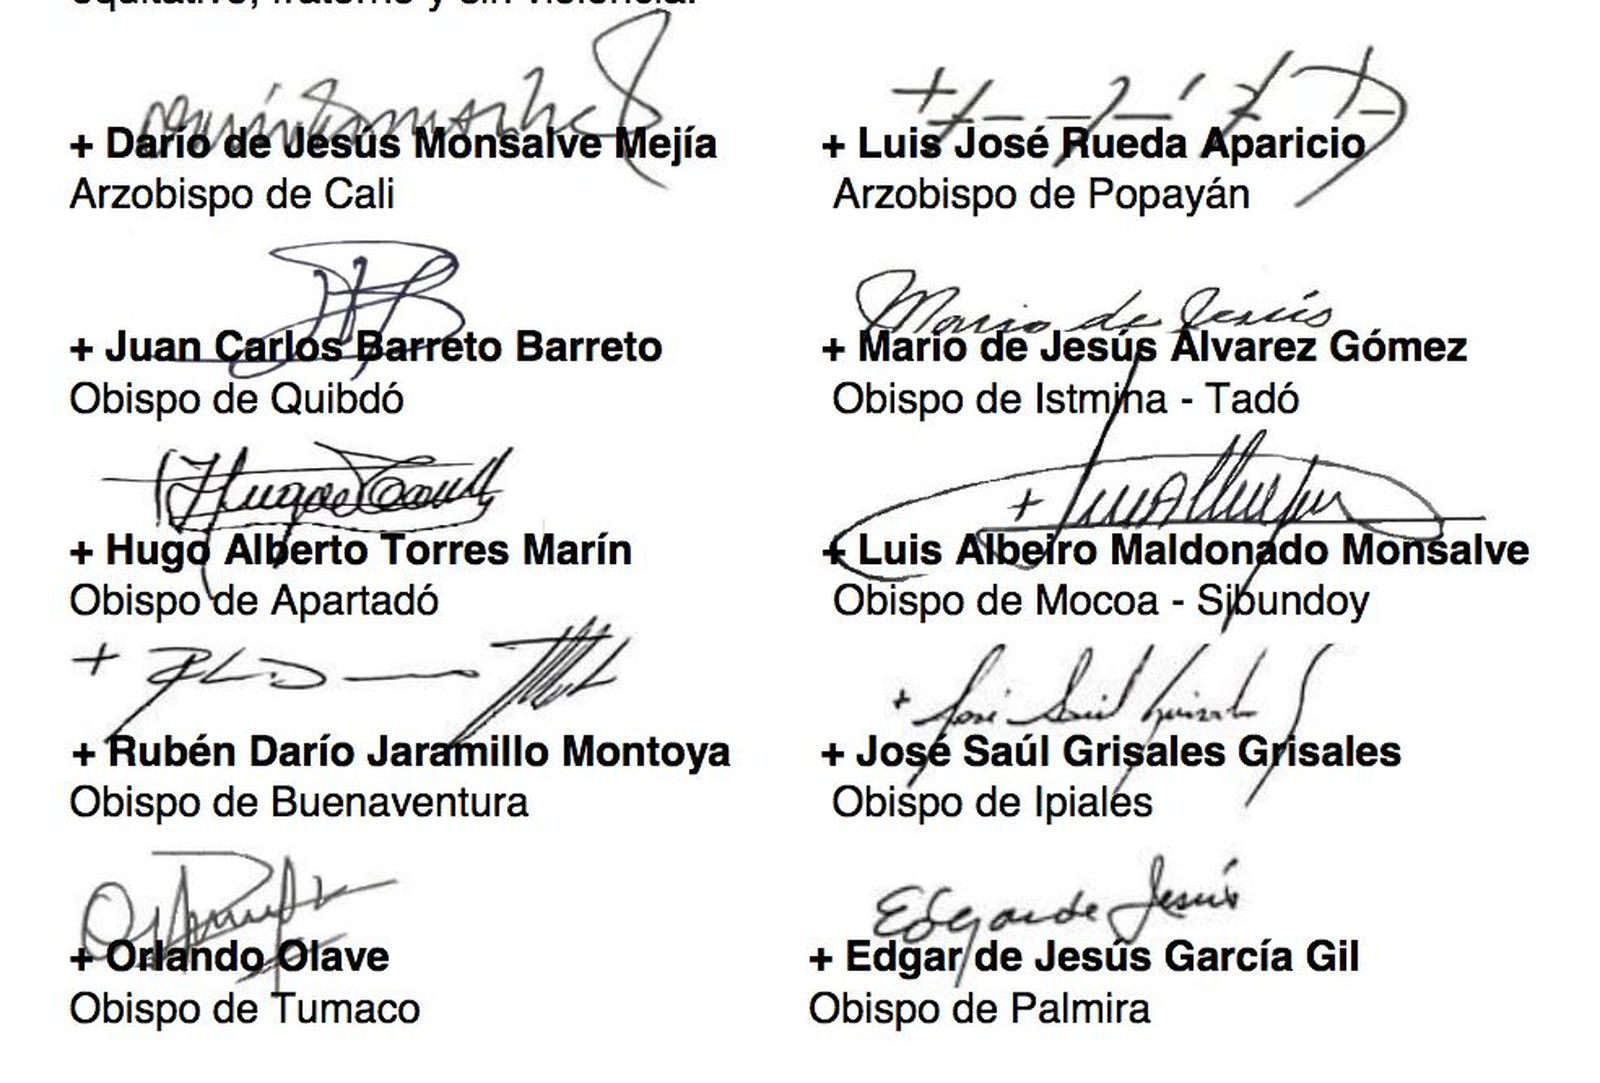 equitativo, fraterno y sin violencia.
+ Darío de Jesús Monsalve Mejía
Arzobispo de Cali
+ Luis José Rueda Aparicio
Arzobispo de Popayán
+ Juan Carlos Barreto Barreto
Obispo de Quibdó
Mario de Jesús
+ Mario de Jesús Álvarez Gómez
Obispo de Istmina - Tadó
+ Hugo Alberto Torres Marín
Obispo de Apartadó
+ Luis Albeiro Maldonado Monsalve
Obispo de Mocoa - Sibundoy
+ Rubén Darío Jaramillo Montoya
Obispo de Buenaventura
+ José Saúl Grisales
+ José Saúl Grisales Grisales
Obispo de Ipiales
+ Orlando Olave
Obispo de Tumaco
Edgar de Jesús
+ Edgar de Jesús García Gil
Obispo de Palmira